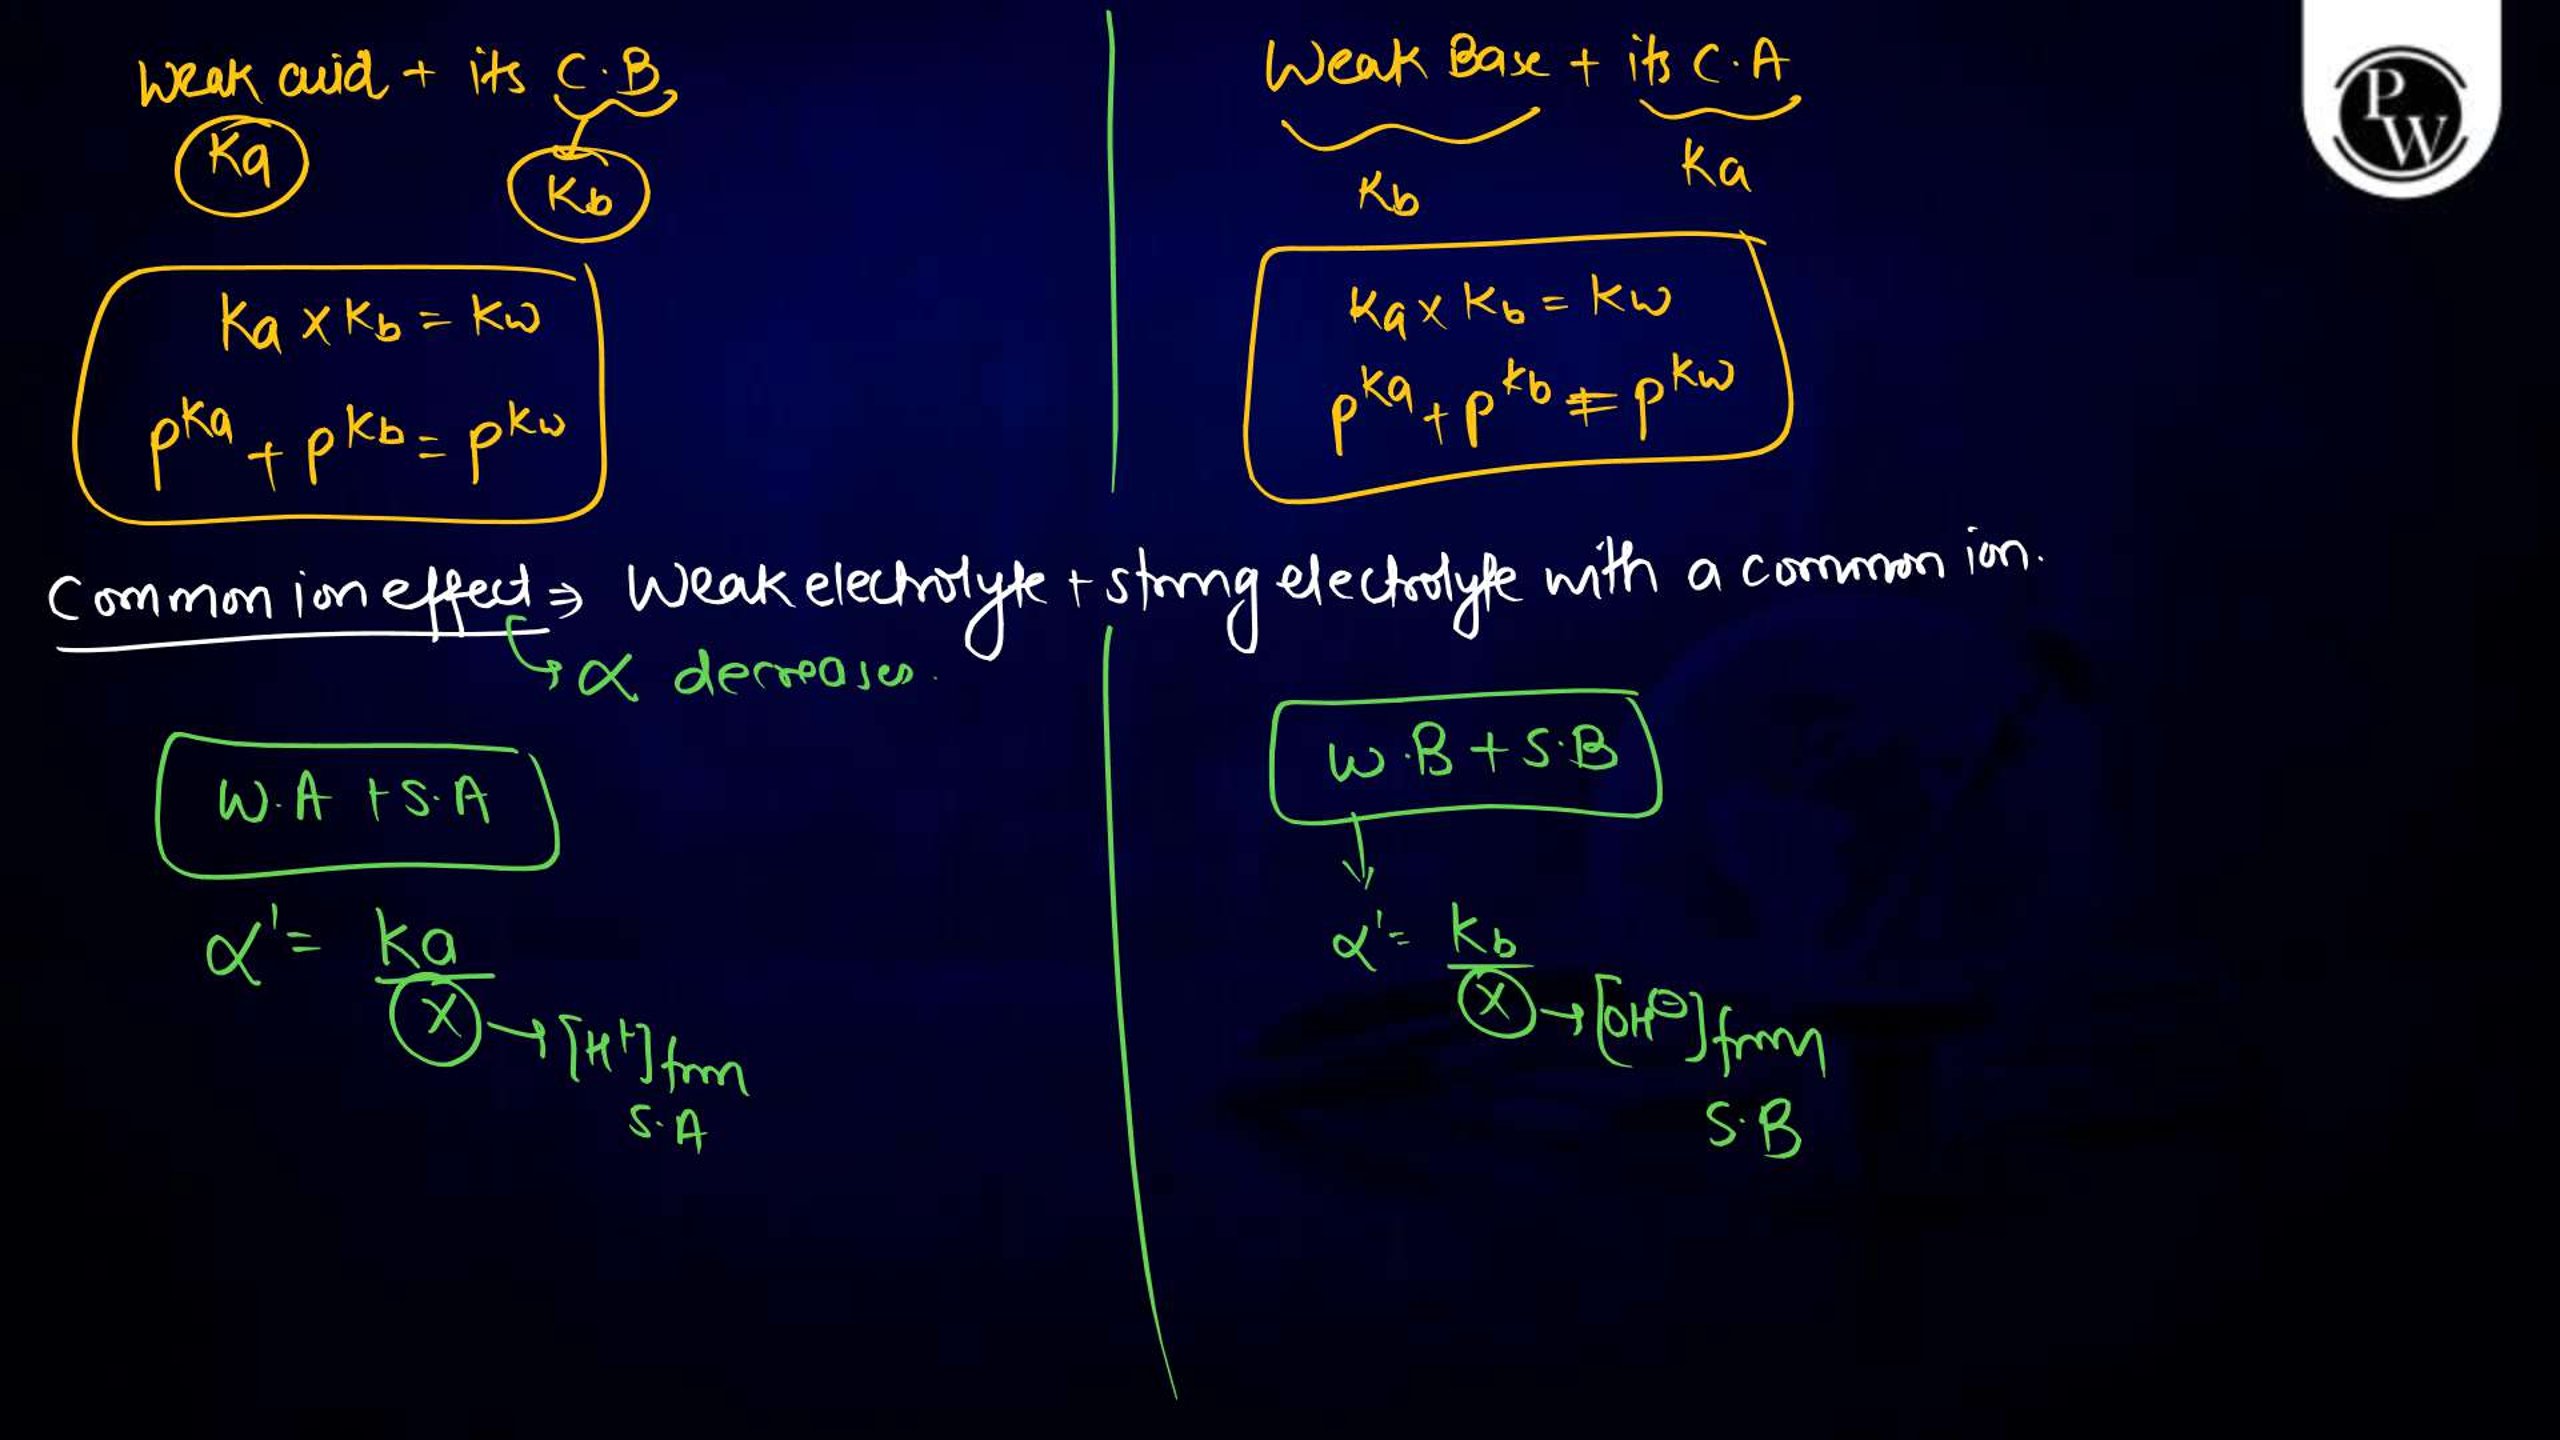 Weak acid + its C.B
Ka
Kb
Ka x Kb = Kw
pKa + pKb = pKw
Weak Base + its C.A
Kb
Ka
Ka x Kb = Kw
pKa + pKb = pKw
PW
Common ion effect ⇒ Weak electrolyte + strong electrolyte with a common ion.
↳ α decreases.
W.A + S.A
α' = Ka
x → [H+] from
S.A
W.B + S.B
↓
α' = Kb
x → [OH⊖] from
S.B